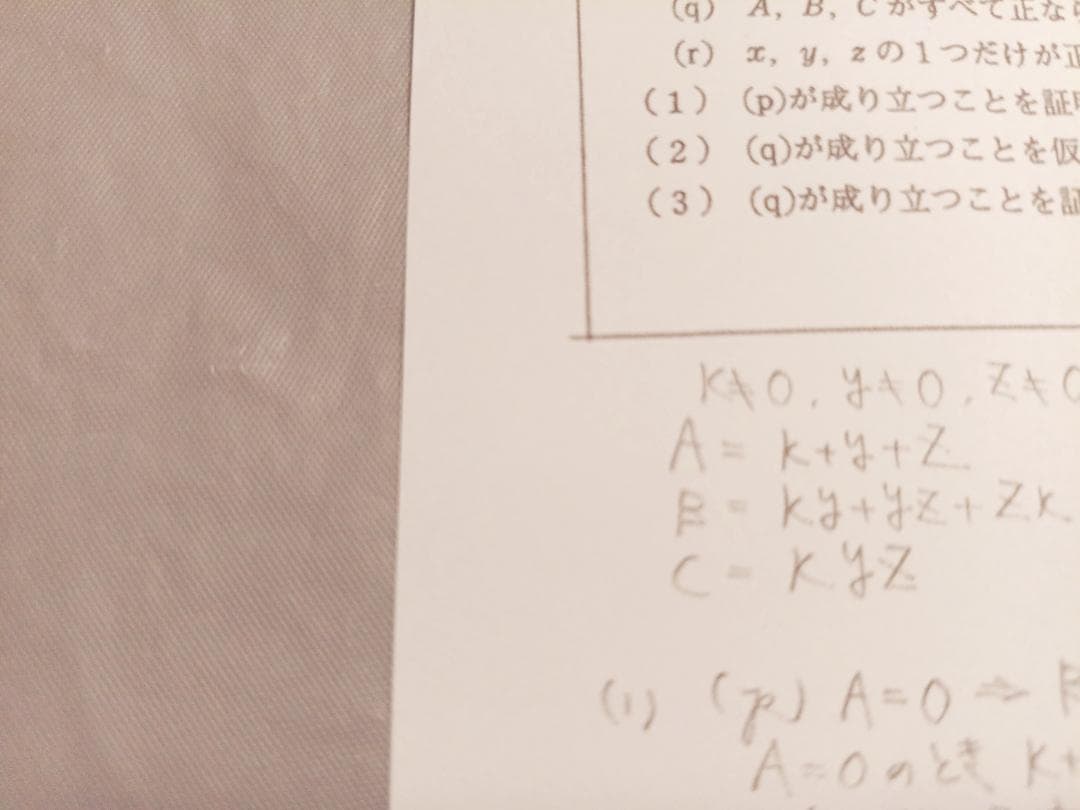 (q) A, B, Cがすべて正なら
(r) x, y, zの1つだけが正
(1) (p)が成り立つことを証明
(2) (q)が成り立つことを仮
(3) (q)が成り立つことを証
x≠0, y≠0, z≠0
A = x+y+z
B = xy+yz+zx
C = xyz
(1) (p) A=0 ⇒ B
A=0のとき x+